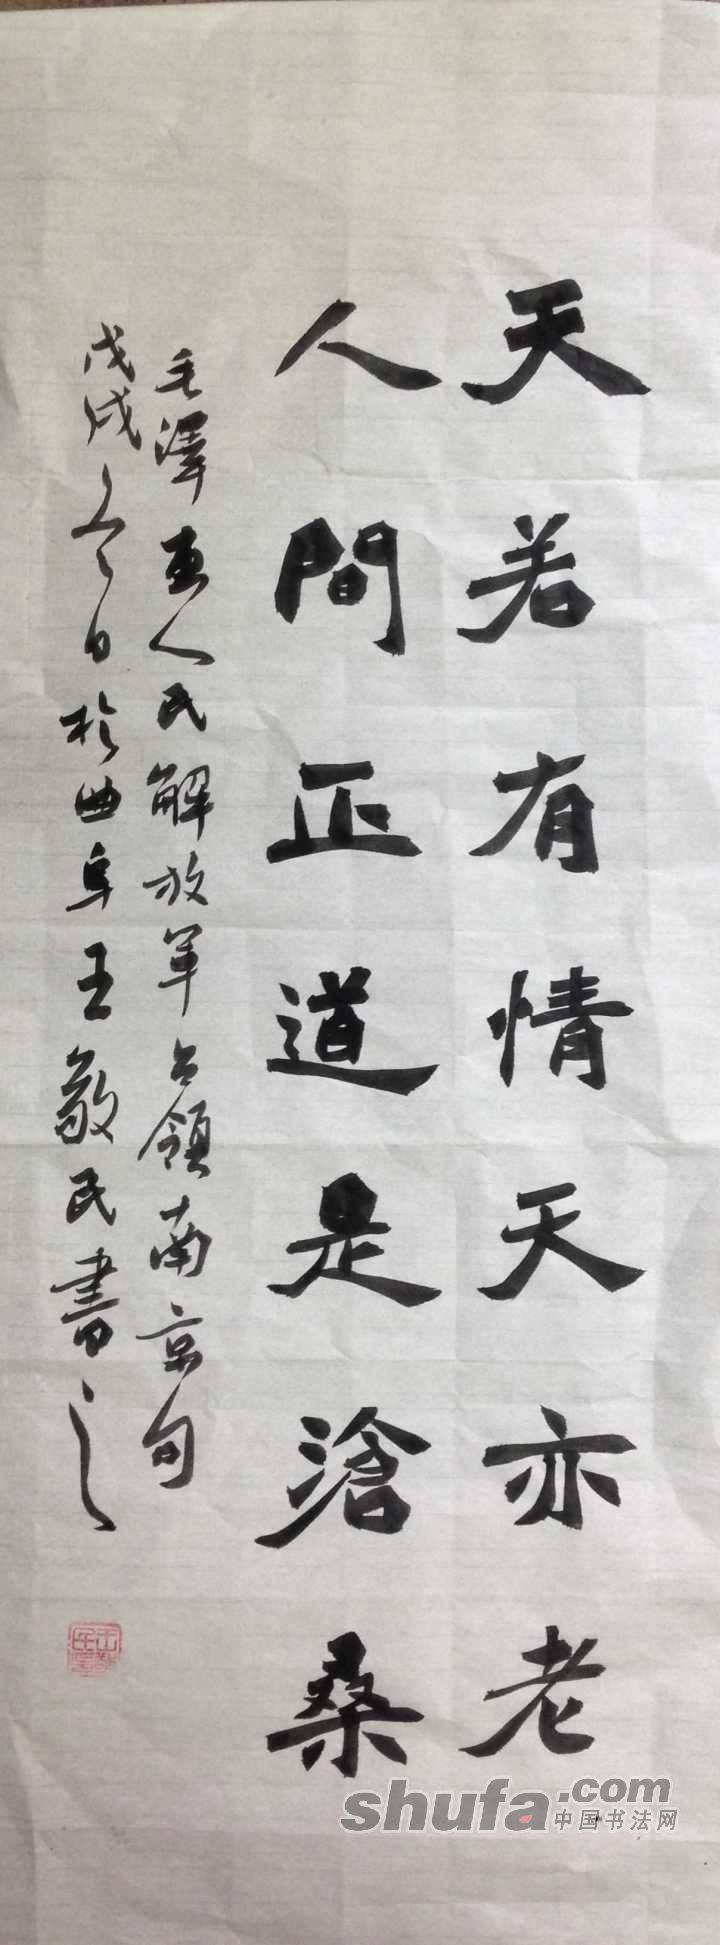 天若有情天亦老
人間正道是滄桑
毛澤東人民解放军占領南京句
戊戌冬日於曲阜王敬民書之
shufa.com
中国书法网